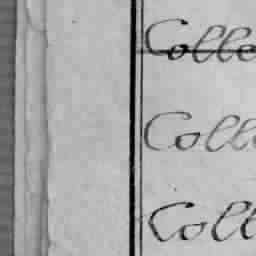 Colle
Coll
Coll